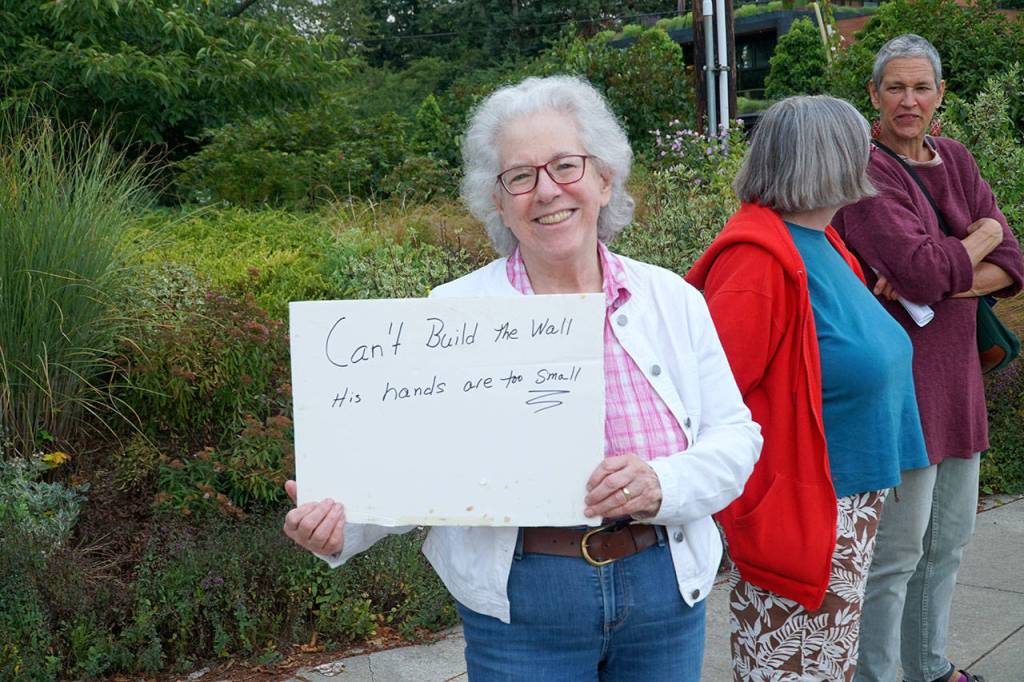 Can't Build the Wall
His hands are too Small